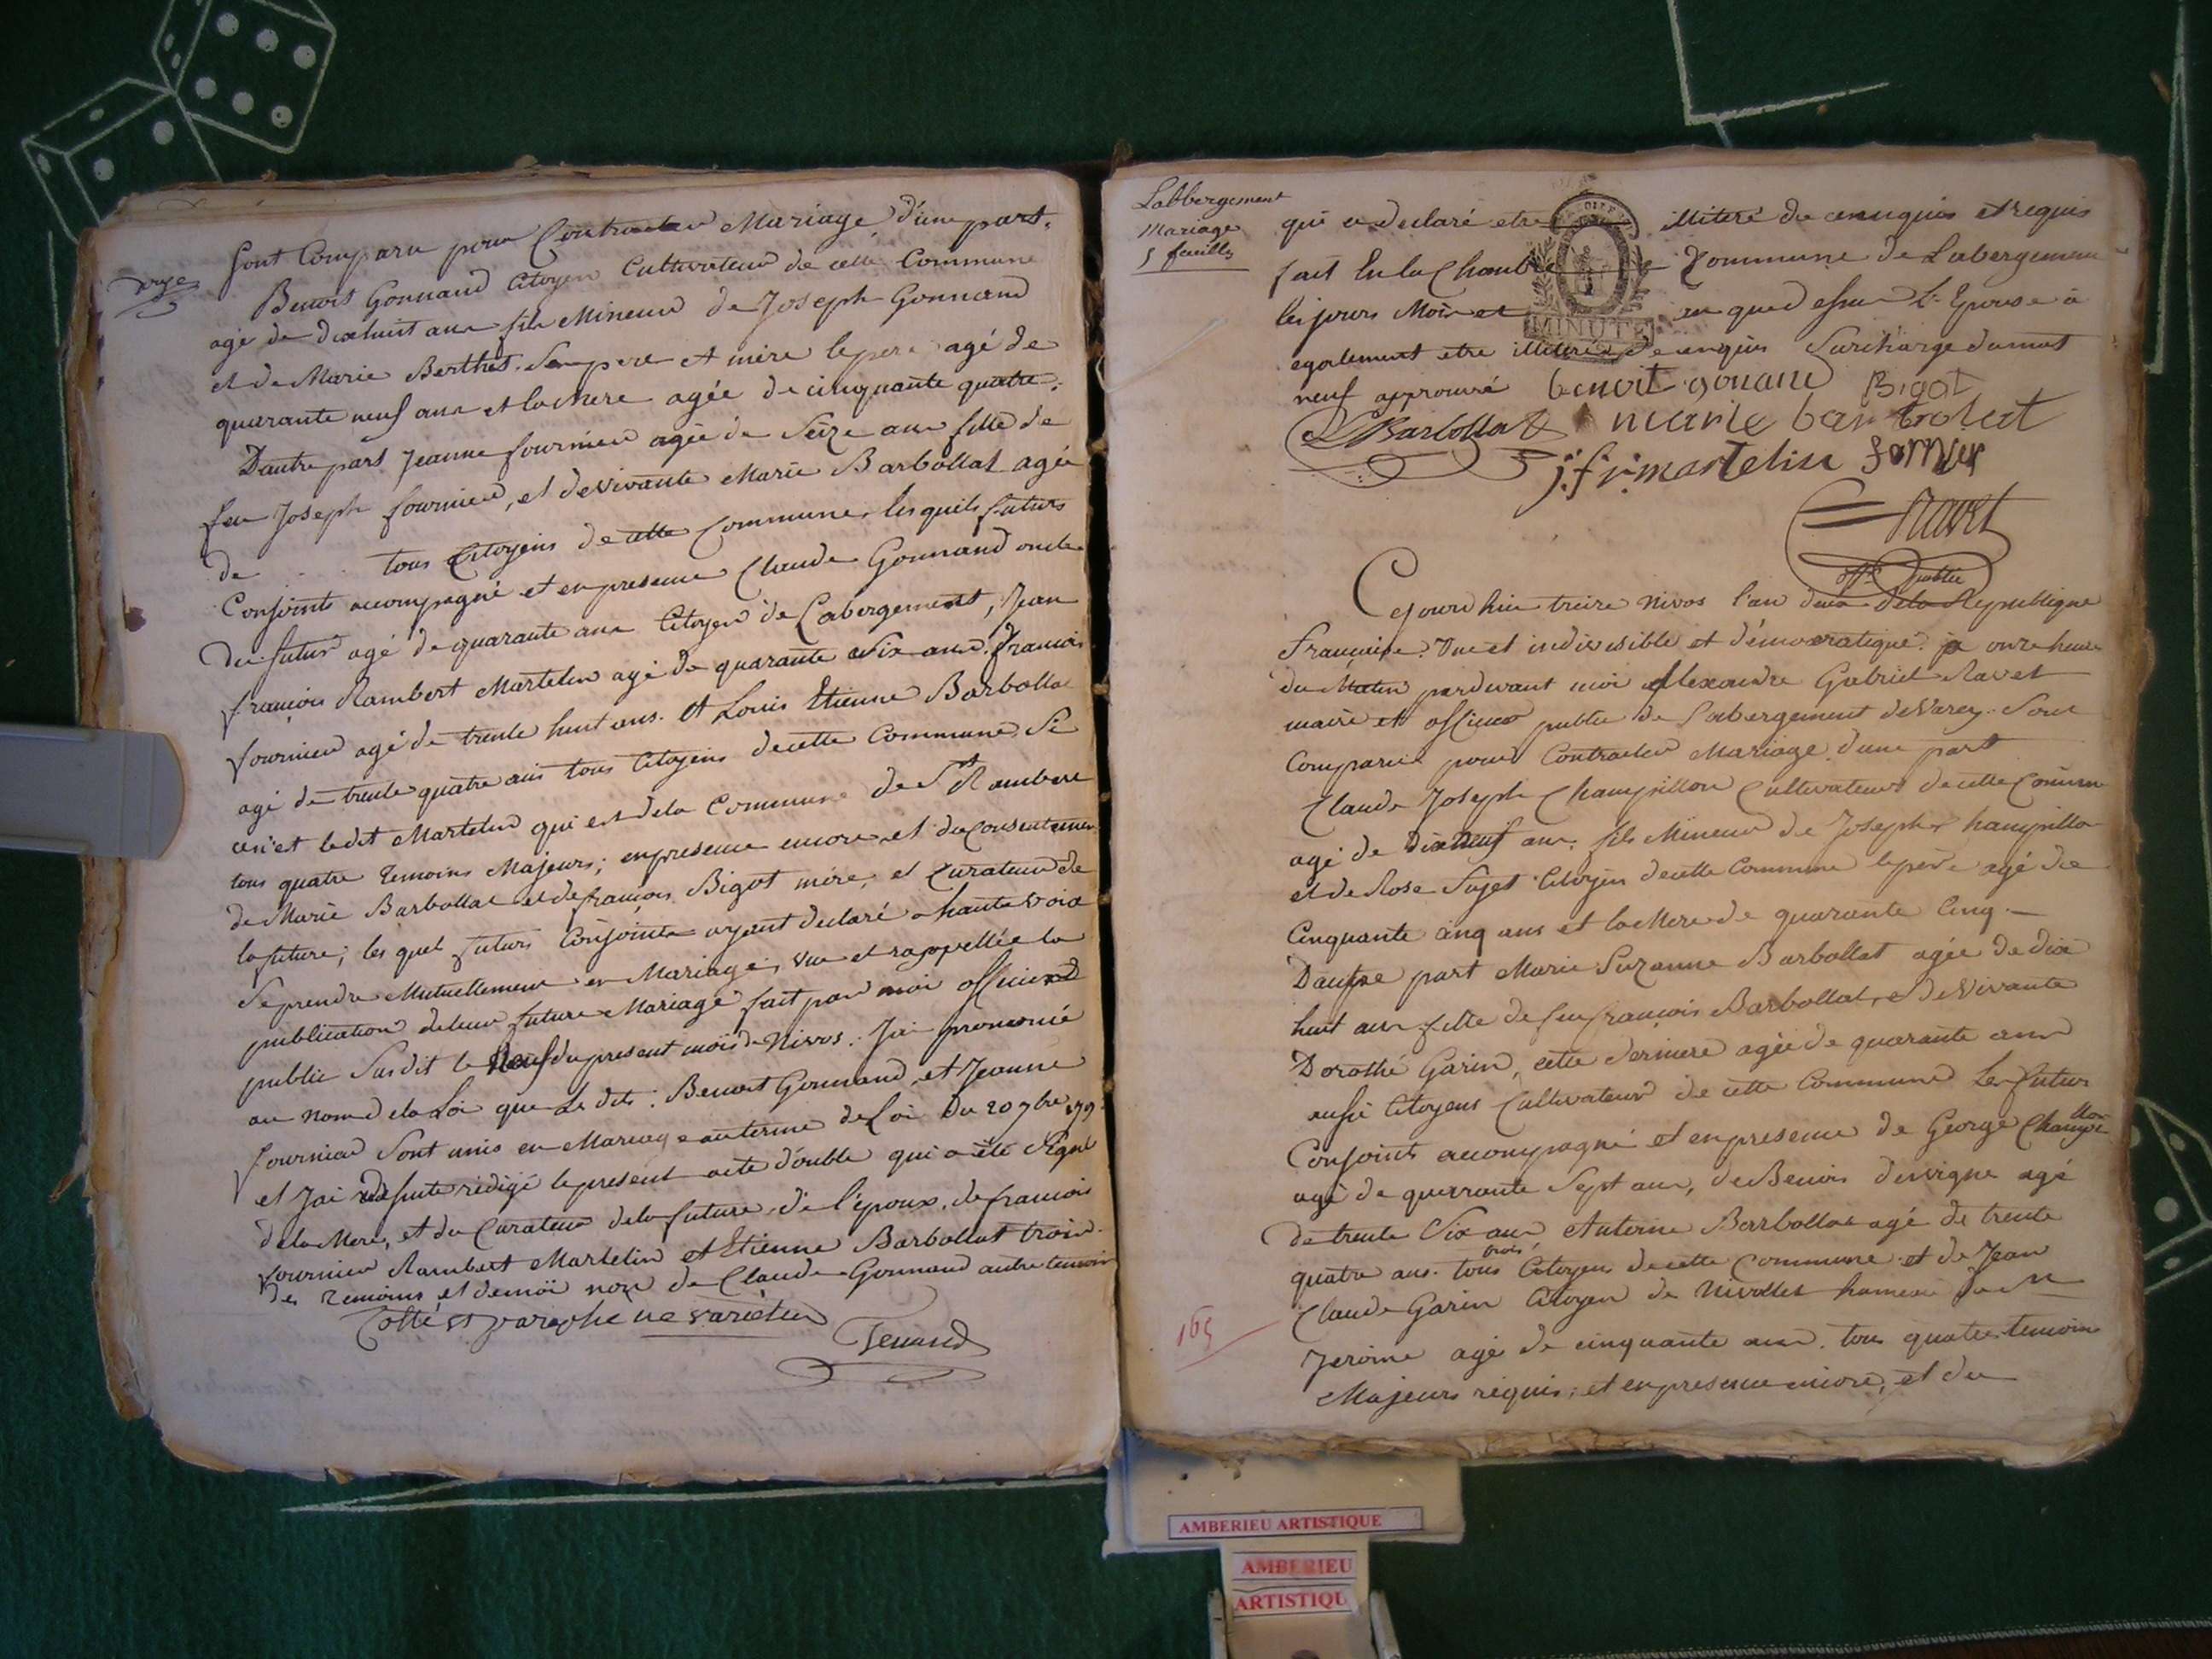 Sont Comparu pour Contracter Mariage, d'une part.
Benoit Gonnand Citoyen Cultivateur de cette Commune
agé de dixhuit ans fils Mineur de Joseph Gonnand
et de Marie Berthet. Ses pere et mère le pere agé de
quarante neuf ans et la mere agée de cinquante quatre.
Dautre part Jeanne fournier agée de Seize ans fille de
feu Joseph fournier, et de vivante Marie Barbollat agée
de tous Citoyens de cette Commune, lesquels futurs
Conjoints accompagné et en presence Claude Gonnand oncle
du futur agé de quarante ans Citoyen de Labergement, Jean
françois Rambert Martelin agé de quarante six ans. françois
fournier agé de trente huit ans. et Louis Etienne Barbollat
agé de trente quatre ans tous Citoyens de cette Commune, Si
ce n'est ledit Martelin qui est de la Commune de St Rambert
tous quatre temoins Majeurs; en presence encore, et du Consentement
de Marie Barbollat et de françois Bigot mère, et Curateur de
la future; les quel futurs Conjoints ayant declaré a haute voix
Se prendre Mutuellement en Mariage, vue et rappellée la
publication de leur future Mariage fait par moi officier
public Susdit le Neuf du present mois de Nivos. J'ai prononcé
au nom de la Loi que Les dits. Benoit Gonnand, et Jeanne
fournier Sont unis en Mariage au terme de Loi Du 20 7bre 179
et J'ai de suite rédigé le present acte double qui a été Signé
de la Mere, et du Curateur de la future, de l'époux, de francois
fournier Rambert Martelin et Etienne Barbollat trois
des temoins et de moi non de Claude Gonnand autre temoin
Cotté et paraphé ne varietur
Tenand
Labbergement
Mariage
5 feuilles
qui a declaré etre illiteré de ce enquis et requis
fait En la Chambre Commune de Labergement
les jours Mois et an que dessus L'Epouse a
egalement etre illiterée de ce enquis Surcharge du mot
neuf approuvé benoit gonand Bigot
L Barbollat marie barbolat
j. f. r. martelin fornier
Ravet
offr public
Cejourd'hui treize Nivos l'an deux de la Republique
francaise. Une et indivisible et démocratique. onze heures
du Matin pardevant moi Alexandre Gabriel Ravet
maire et officier public de Labergement de Varey. Sont
Comparus pour Contracter Mariage d'une part
Claude Joseph Champillon Cultivateur de cette Commun
agé de dixneuf ans. fils Mineur de Joseph Champillon
et de Rose Sujet Citoyens de cette Commune le père agé de
Cinquante cinq ans et la Mere de quarante Cinq.
Dautre part Marie Suzanne Barbollat agée de dix
huit ans fille de feu françois Barbollat, et de Vivante
Dorothé Garin, cette derniere agée de quarante ans
aussi Citoyens Cultivateur de cette Commune Les futurs
Conjoints accompagné et en presence de George Champillon
agé de quarrante Sept ans, de Benois dervigne agé
de trente Six ans Anterme Barbollat agé de trente
quatre ans. tous trois Citoyens de cette Commune et de Jean
Claude Garin Citoyen de Nivollet hameau de St
Jerome agé de cinquante ans. tous quatre temoins
Majeurs requis; et en presence encore, et du
165
MINUTE
AMBERIEU ARTISTIQUE
AMBERIEU
ARTISTIQU